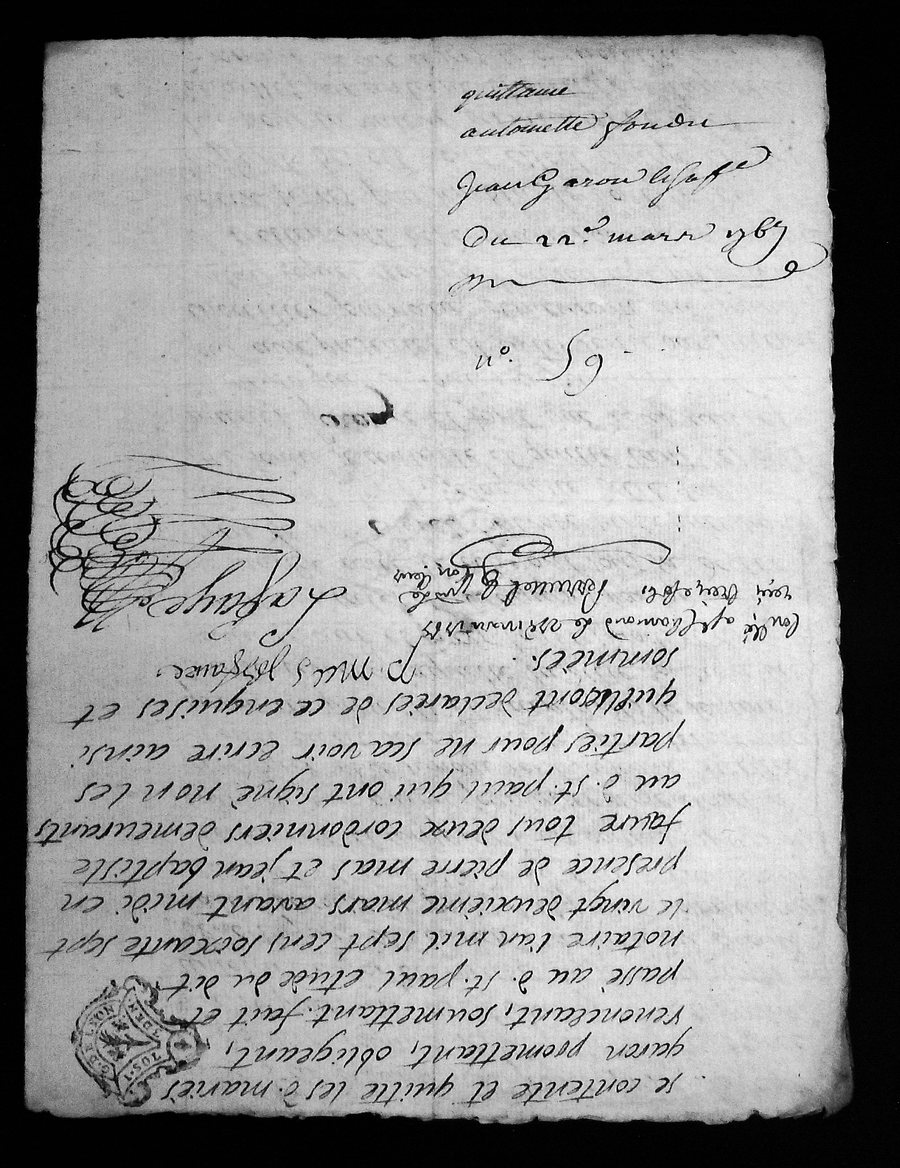 quittance
antoinette fondu
Jean Garon
Du 22e. mars 1767
n°. 59
se contente et quitte les d. mariés
garon promettant, obligeant,
renonceant, soumettant. fait et
passé au d. st. paul etude du dit
notaire l'an mil sept cens soixante sept
le vingt deuxieme mars avant midi en
presence de pierre mas et jean baptiste
faure tous deux cordonniers demeurants
au d. st. paul qui ont signé non les
parties pour ne scavoir ecrire ainsi
qu'elles ont declarées de ce enquises et
sommées.
P mas
Con.llé a st chamond le 22e mars 1767
reçu treize sols
Lafaye
G. DE LYON